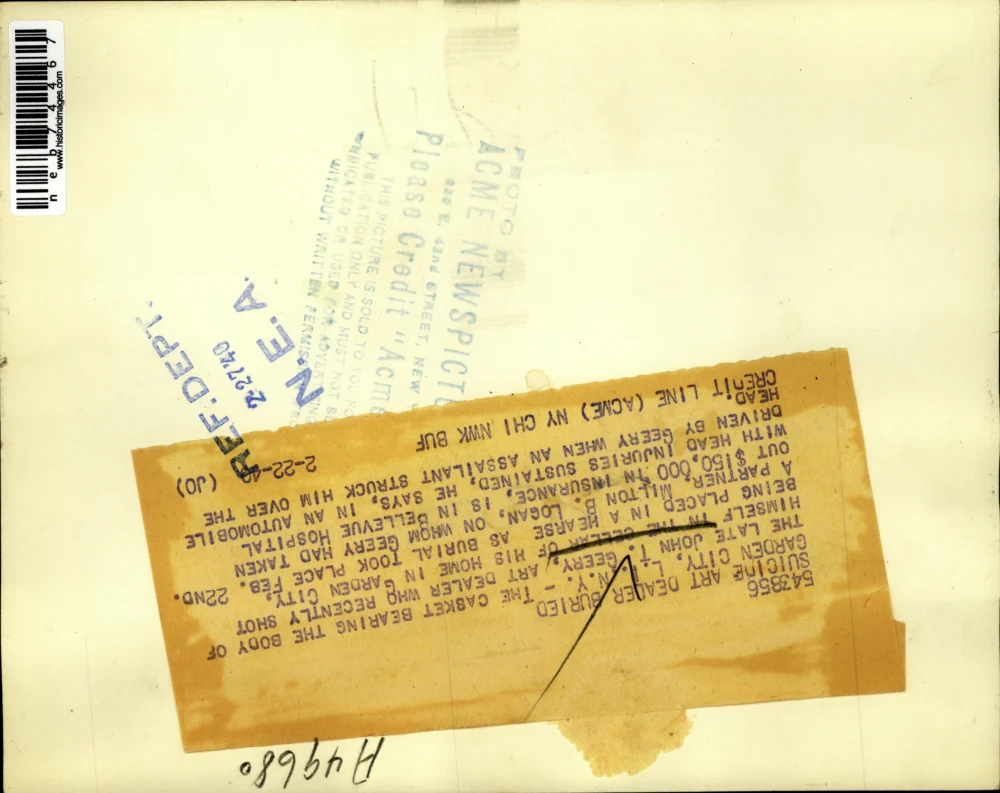 543856
SUICIDE ART DEALER BURIED
GARDEN CITY, L. I., N. Y. - THE CASKET BEARING THE BODY OF
THE LATE JOHN T. GEERY, ART DEALER WHO RECENTLY SHOT
HIMSELF IN THE CELLAR OF HIS HOME IN GARDEN CITY,
BEING PLACED IN A HEARSE AS BURIAL TOOK PLACE FEB. 22ND.
A PARTNER, MILTON B. LOGAN, ON WHOM GEERY HAD TAKEN
OUT $150,000 IN INSURANCE, IS IN BELLEVUE HOSPITAL
WITH HEAD INJURIES SUSTAINED, HE SAYS, IN AN AUTOMOBILE
DRIVEN BY GEERY WHEN AN ASSAILANT STRUCK HIM OVER THE
HEAD
CREDIT LINE (ACME) NY CHI NWK BUF 2-22-40 (JO)
REF. DEPT.
2·27'40
N. E. A.
PHOTO BY
ACME NEWSPICTU
220 E. 42nd STREET, NEW
Please Credit "Acme
THIS PICTURE IS SOLD TO YOU FO
PUBLICATION ONLY AND MUST NOT BE
OR USED FOR ADVE
WITHOUT WRITTEN PERMISS
A49680
neb74467
www.historicimages.com